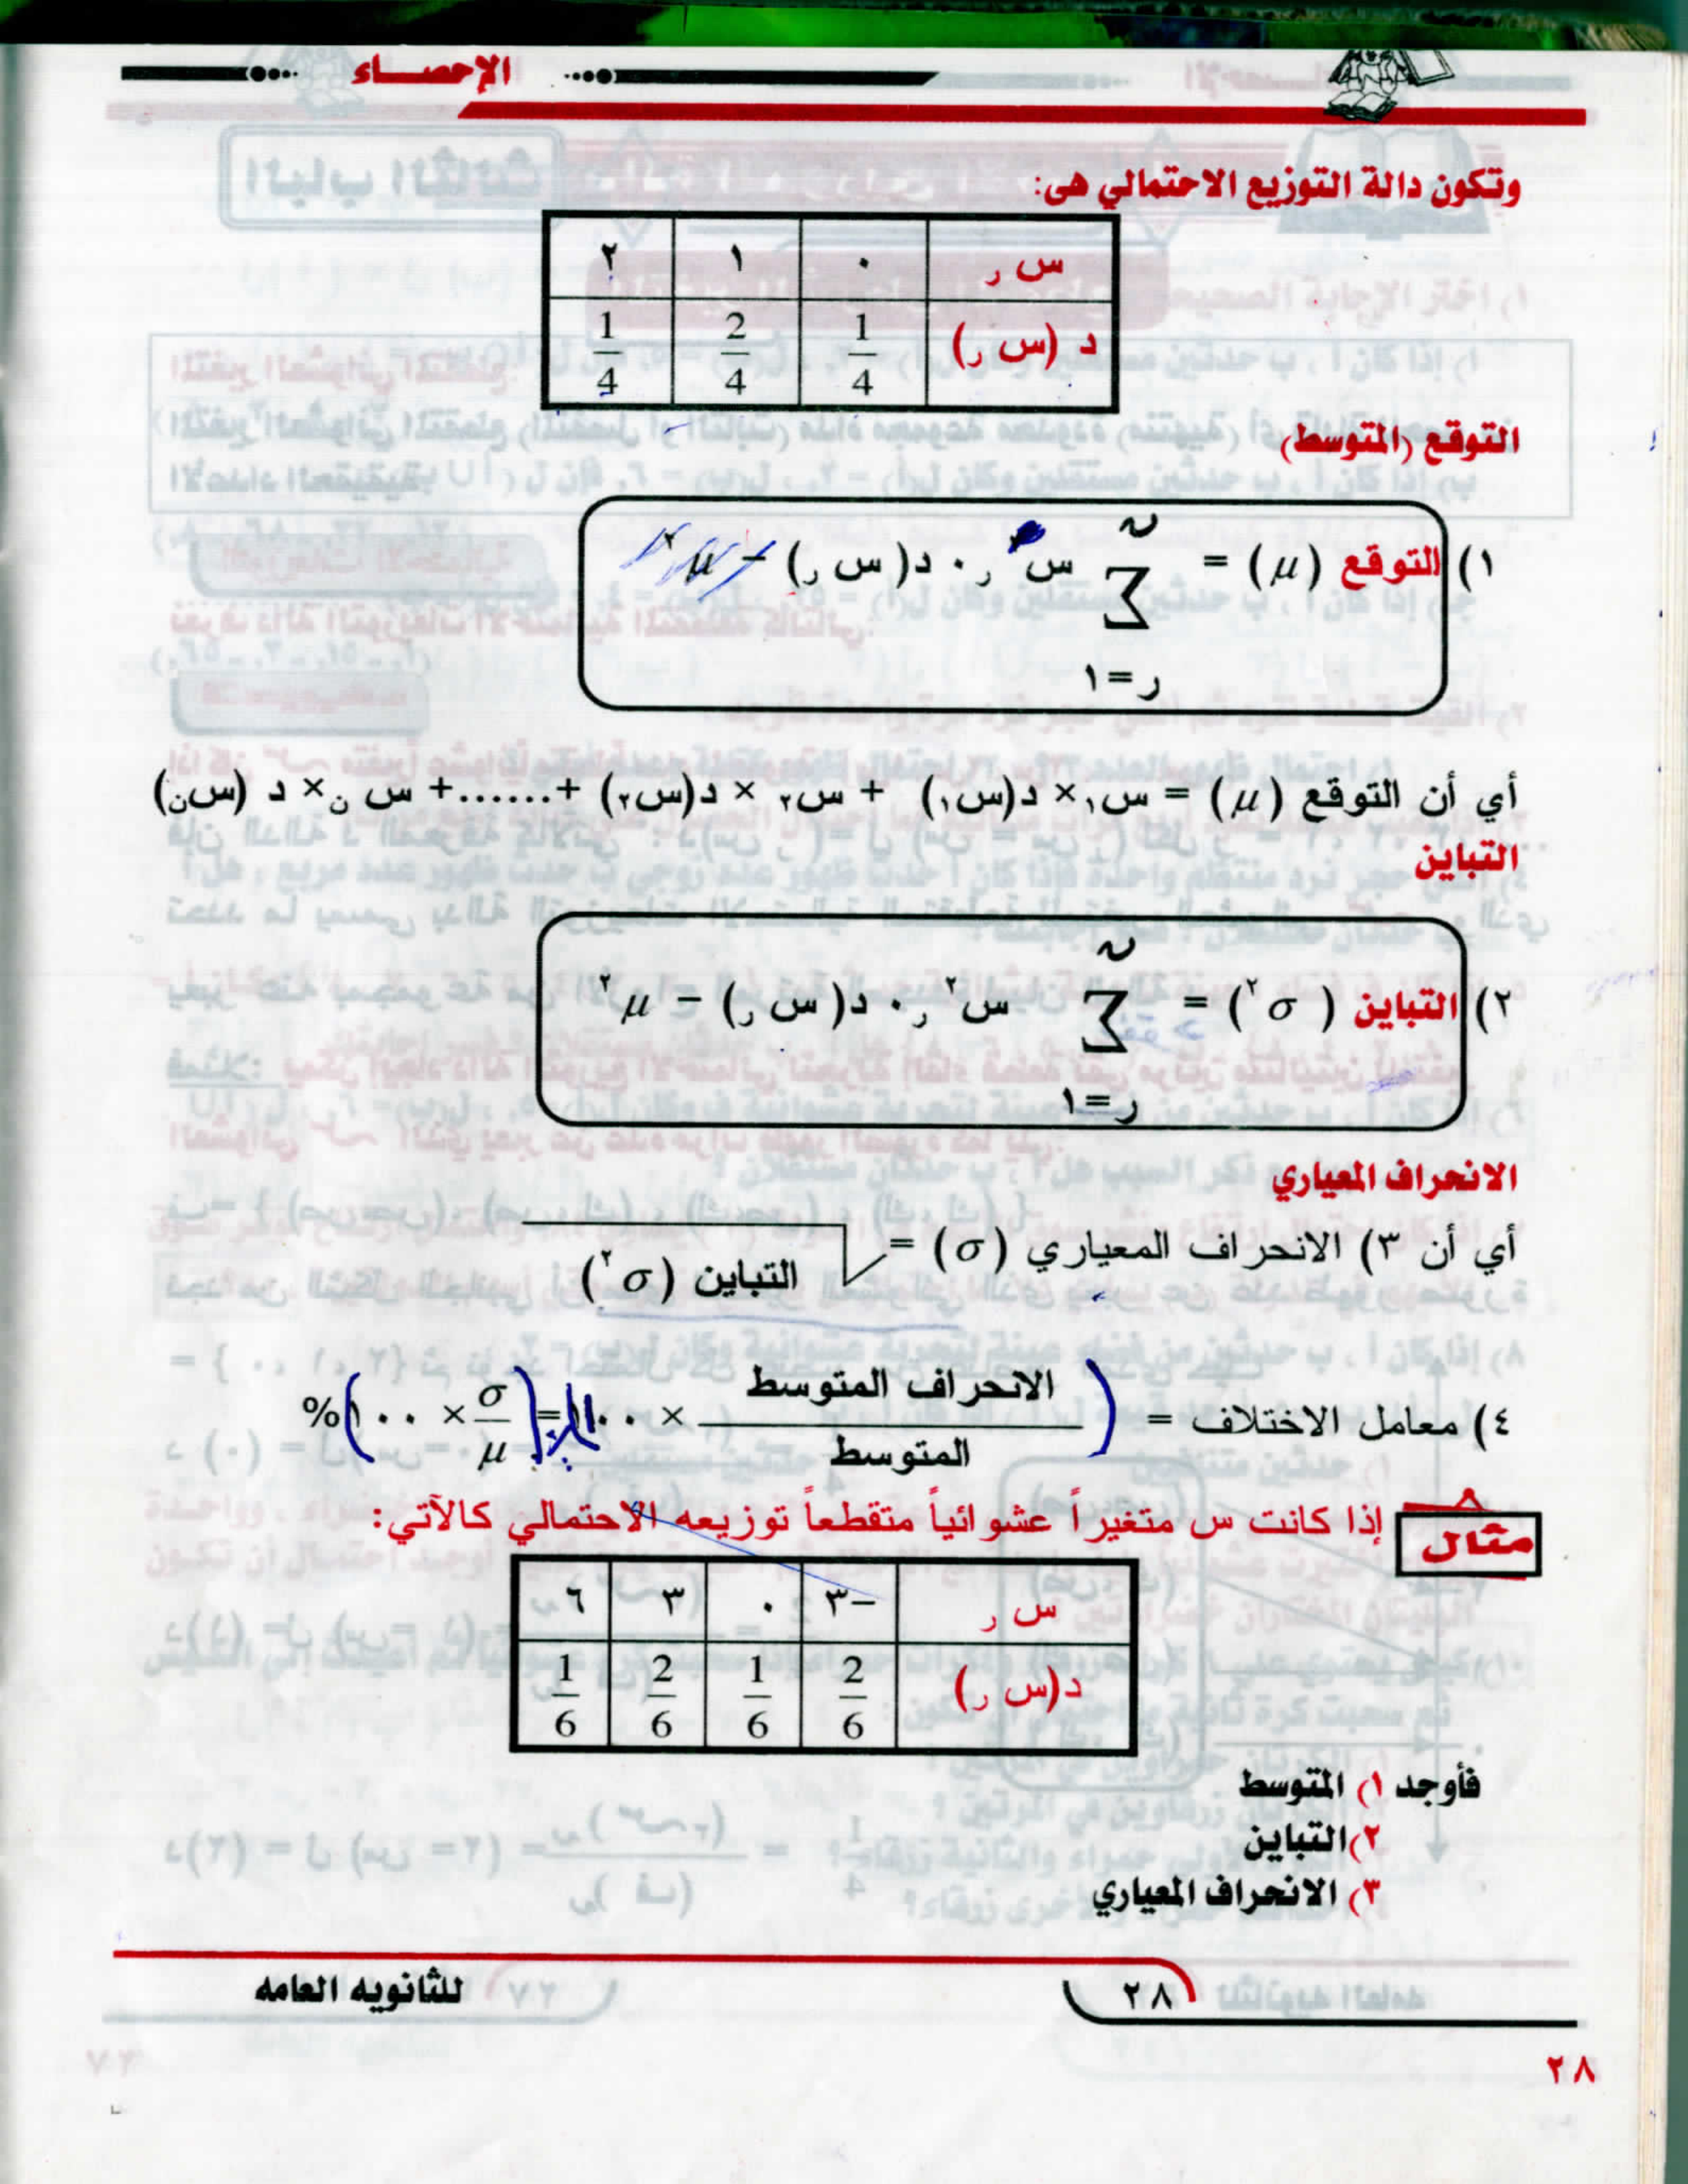 الإحصـــاء
وتكون دالة التوزيع الاحتمالي هى:
س ر ٠ ١ ٢
د (س ر) 1/4 2/4 1/4
التوقع (المتوسط)
ن
١) التوقع (μ) = Σ س ر . د( س ر) – μ٢
ر=١
أي أن التوقع (μ) = س١× د(س١) + س٢ × د(س٢) +......+ س ن× د (سن)
التباين
ن
٢) التباين (σ٢) = Σ س٢ر . د( س ر) – μ٢
ر=١
الانحراف المعياري
أي أن ٣) الانحراف المعياري (σ) = √التباين (σ٢)
٤) معامل الاختلاف = (الانحراف المتوسط / المتوسط × ١٠٠ = (σ/μ × ١٠٠)%
مثال إذا كانت س متغيراً عشوائياً متقطعاً توزيعه الاحتمالي كالآتي:
س ر –٣ ٠ ٣ ٦
د(س ر) 2/6 1/6 2/6 1/6
فأوجد ١) المتوسط
٢)التباين
٣) الانحراف المعياري
٢٨ للثانويه العامه
٢٨